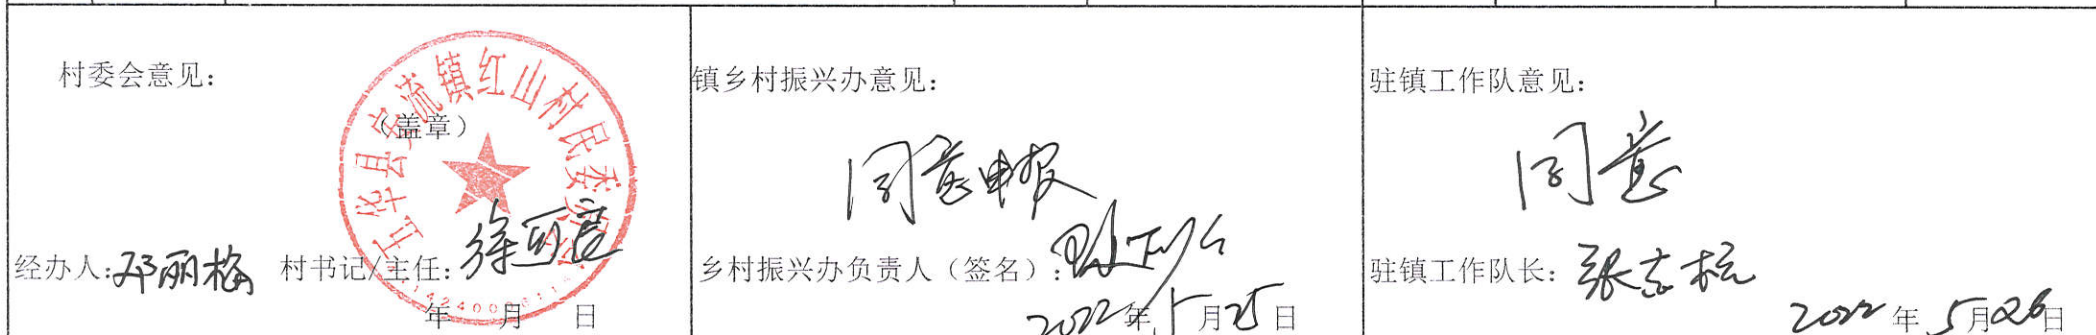 村委会意见：
（盖章）
五华县安流镇红山村民委员会
经办人：邓丽梅 村书记/主任：徐
年 月 日
镇乡村振兴办意见：
同意申报
乡村振兴办负责人（签名）：
2022年5月25日
驻镇工作队意见：
同意
驻镇工作队长：张志
2022年5月26日